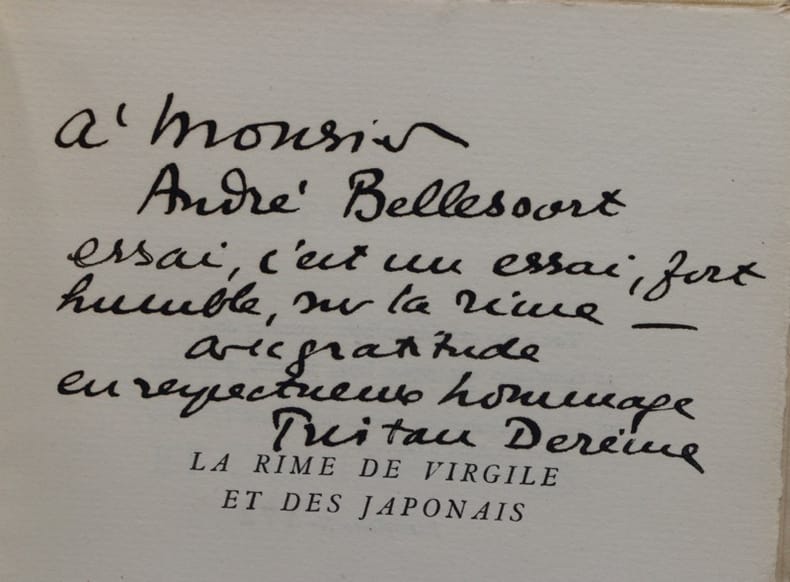 à Monsieur
André Bellessort
essai, c'est un essai, fort
humble, sur la rime —
avec gratitude
en respectueux hommage
Tristan Derème
LA RIME DE VIRGILE
ET DES JAPONAIS